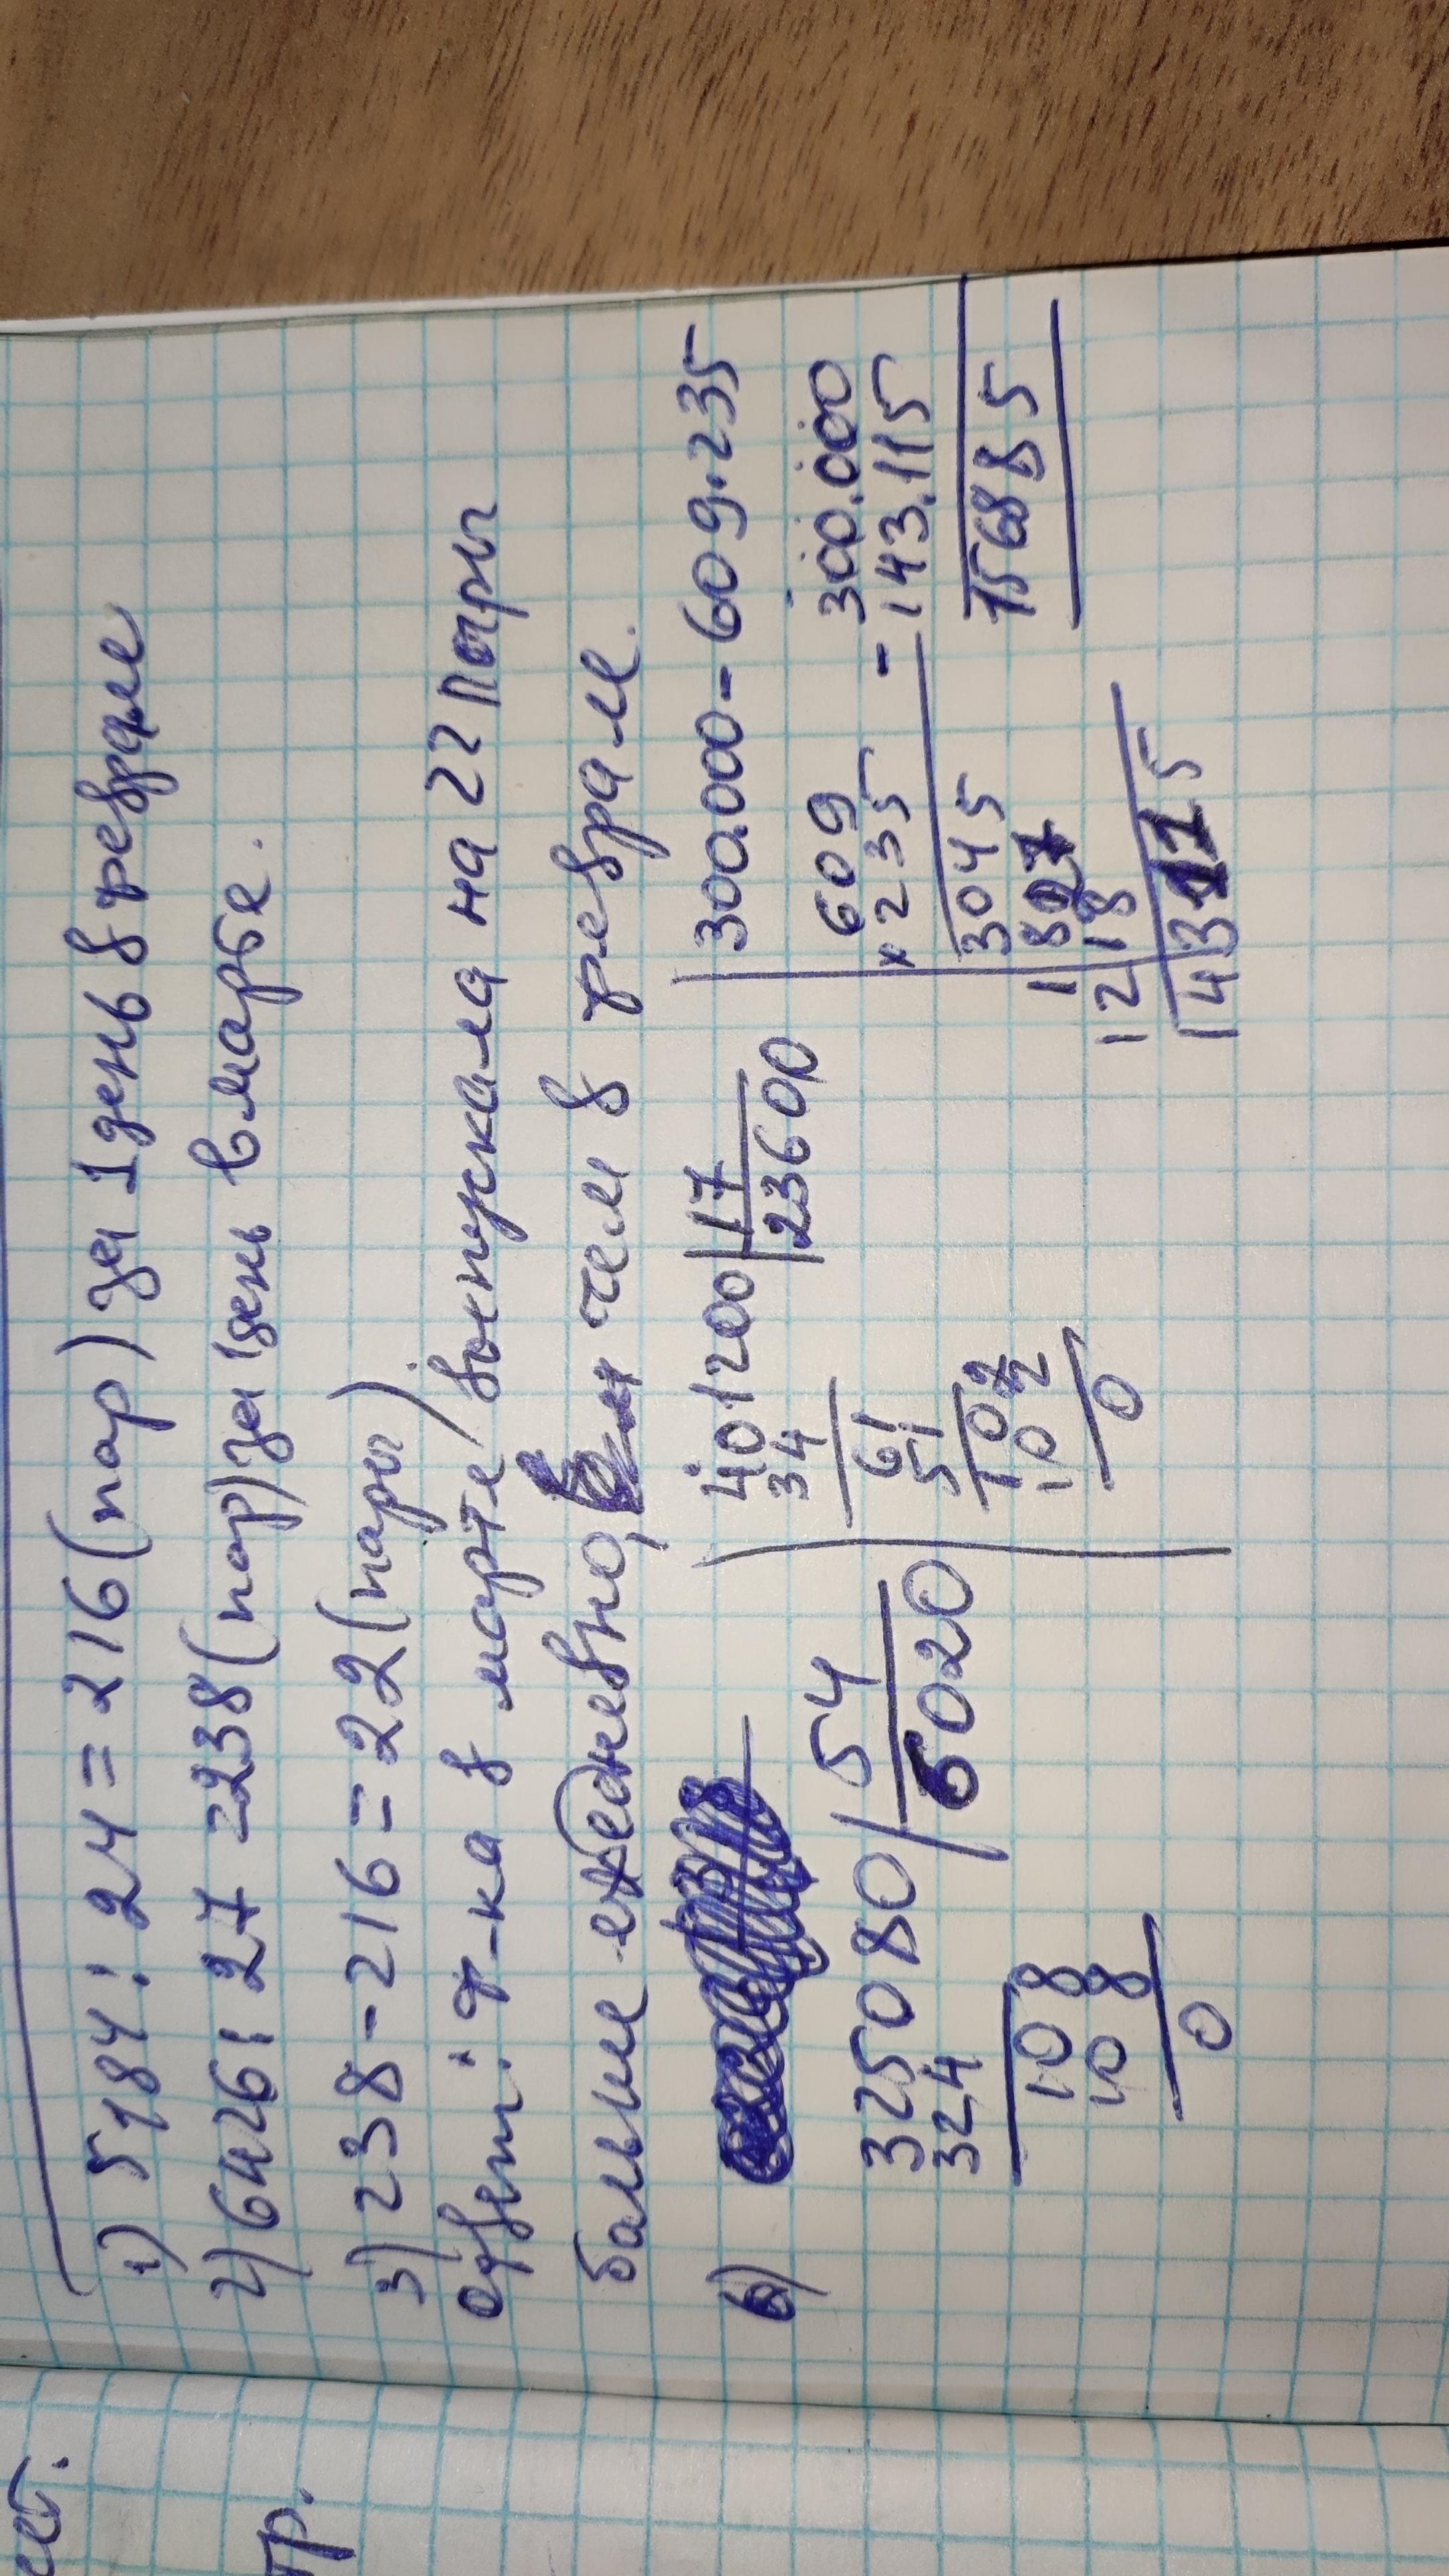 1) 5184 : 24 = 216 (пар) за 1 день в феврале
2) 6426 : 27 = 238 (пар) за 1 день в марте.
3) 238 - 216 = 22 (пары)
ответ: ф-ка в марте выпускала на 22 пары
больше ежедневно, чем в феврале.
6)
325080 | 54
324 | 6020
108
108
0
401200 | 17
34 | 23600
61
51
102
102
0
300.000 - 609.235
609
× 235
3045
1827
1218
143115
- 300.000
143.115
156885
ст.
тр.